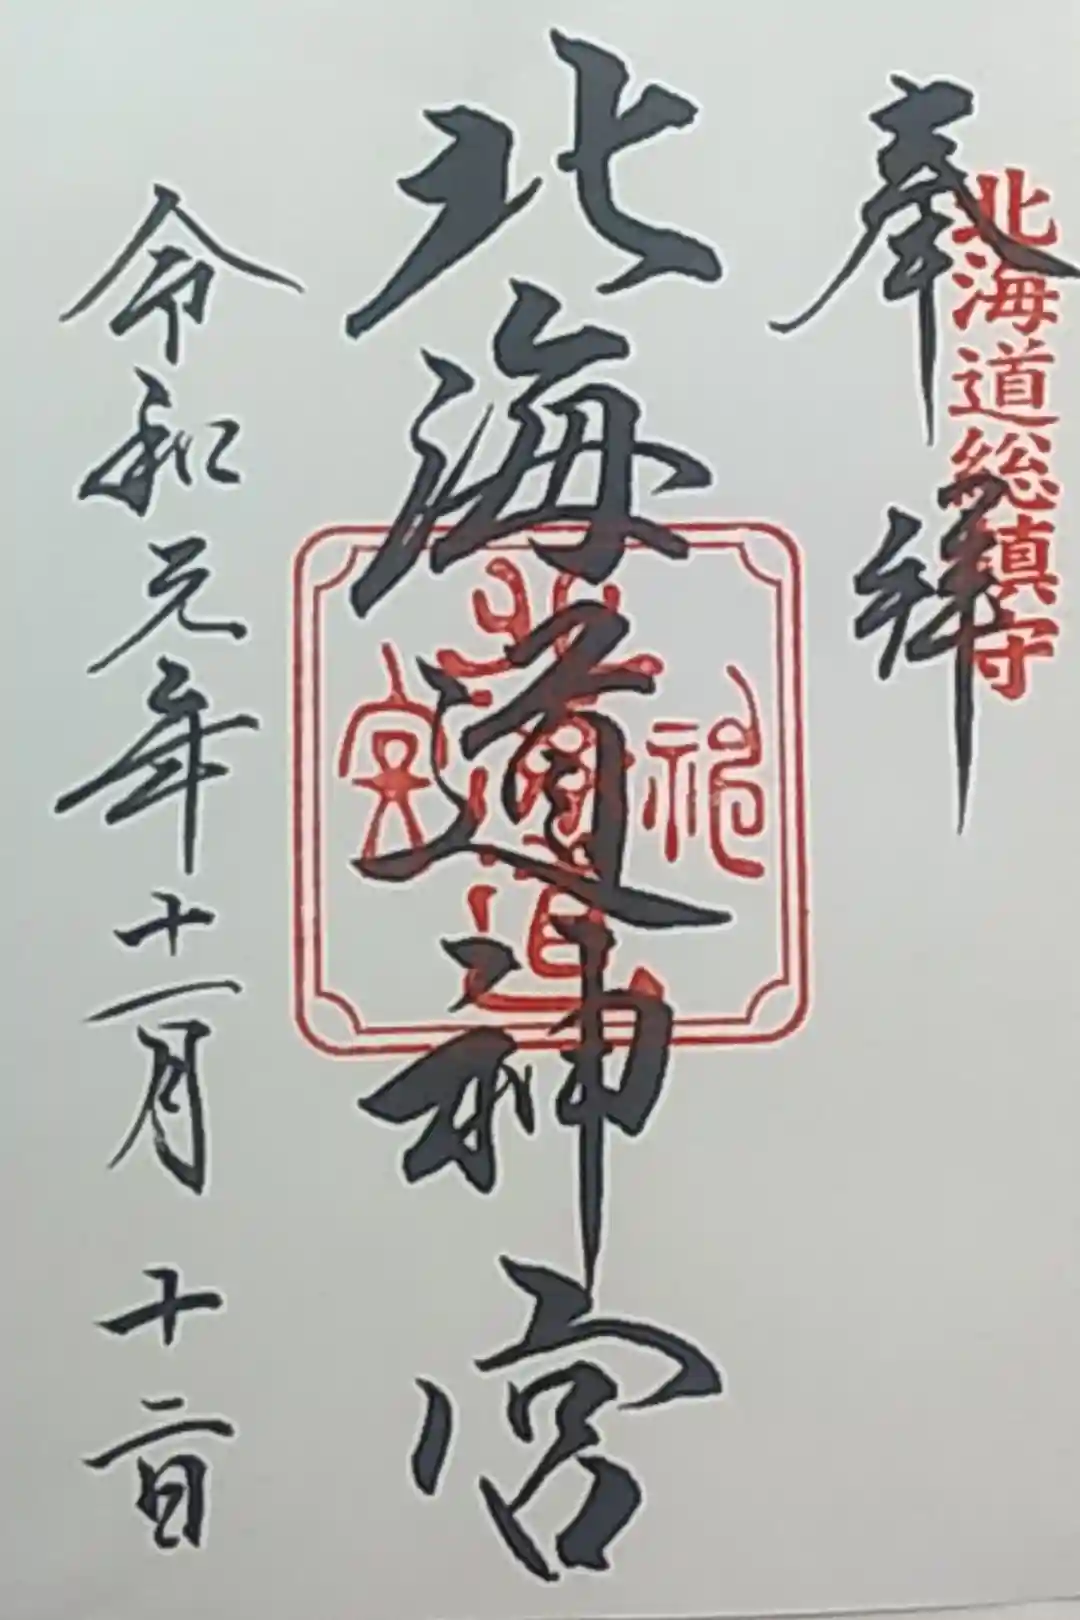 奉拝
北海道総鎮守
北海道神宮
北海道神宮
令和元年十一月十二日